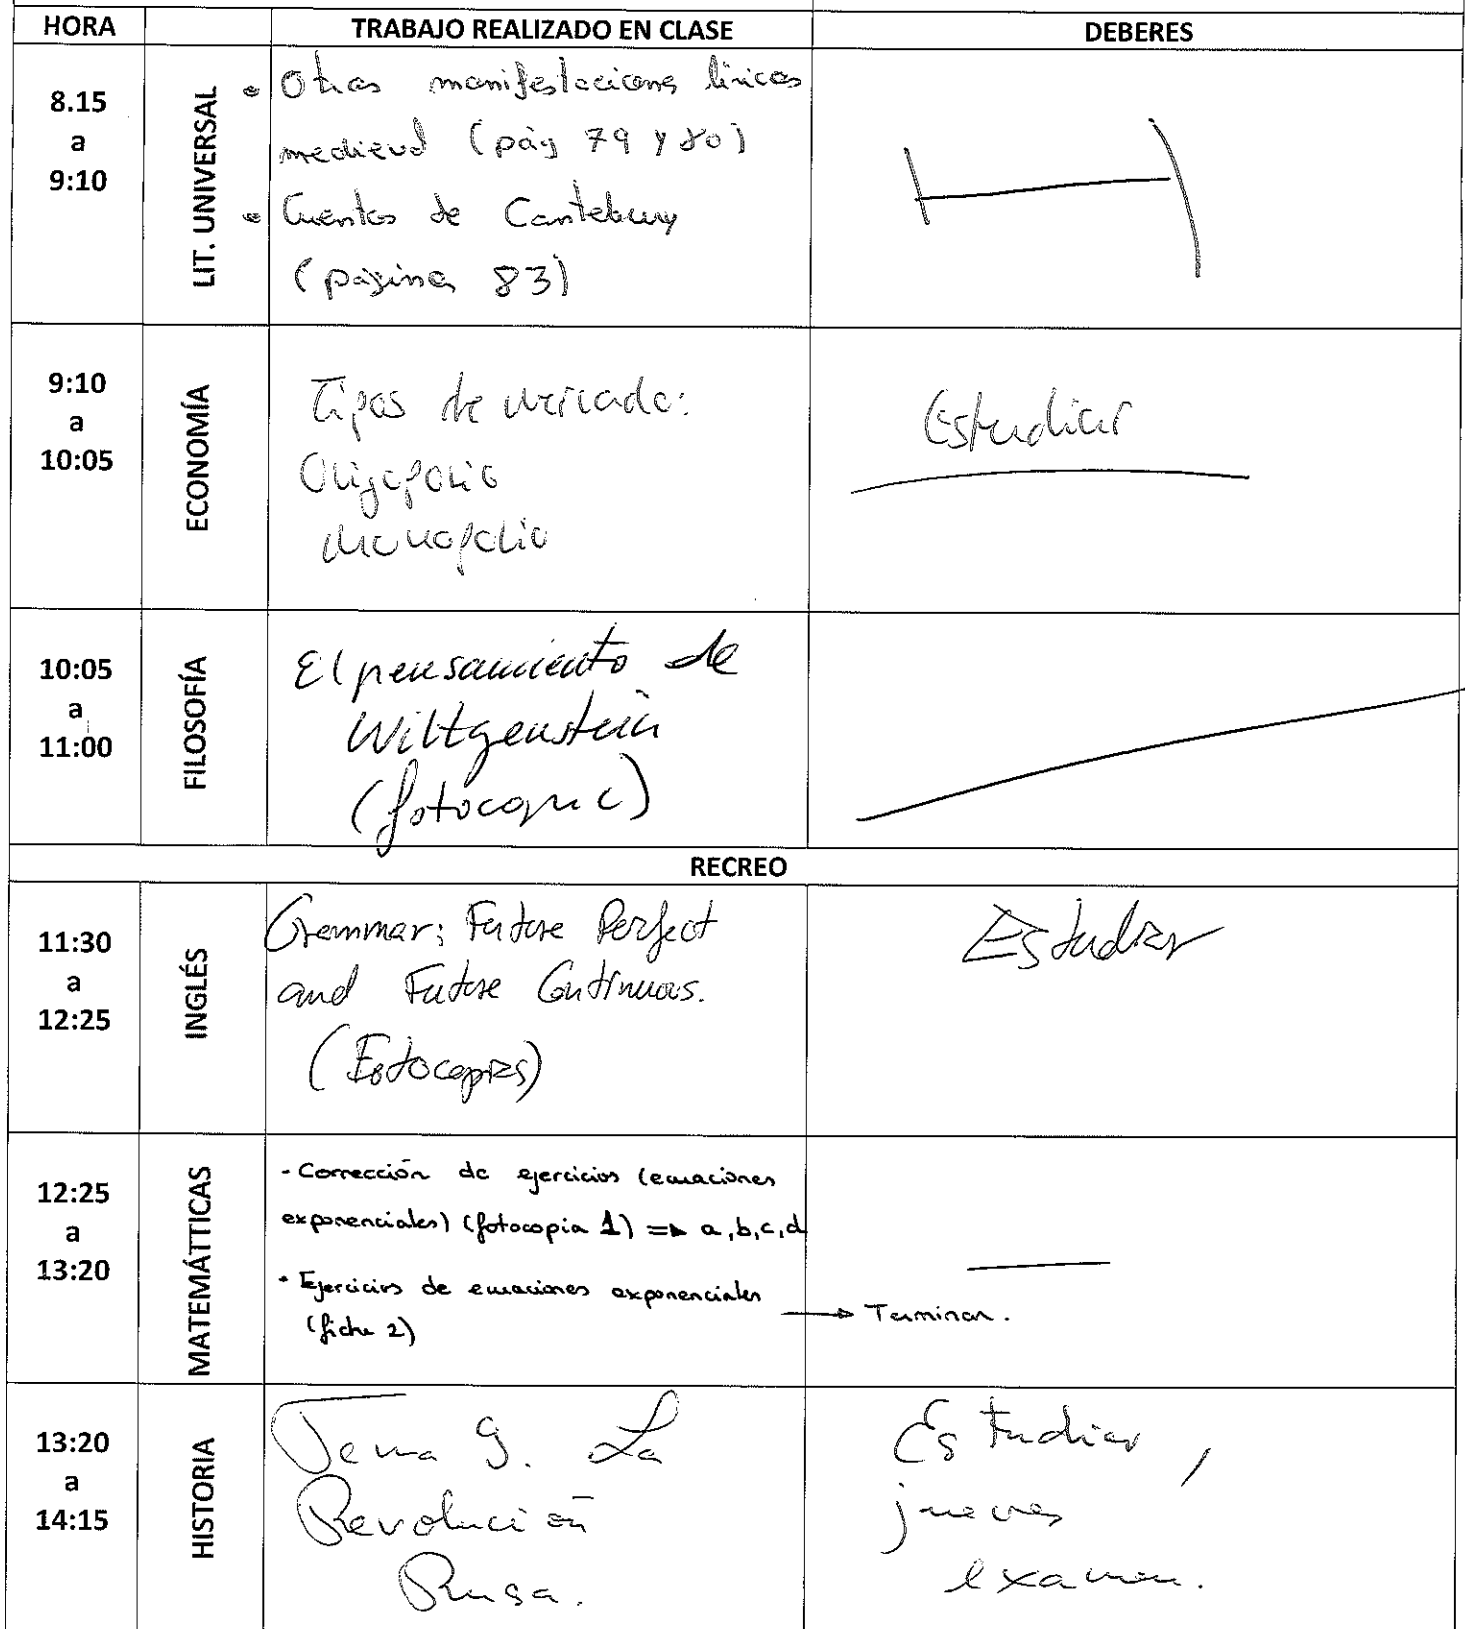 HORA TRABAJO REALIZADO EN CLASE DEBERES
8.15
a
9:10
LIT. UNIVERSAL
• Otras manifestaciones líricas
medieval (pág 79 y 80)
• Cuentos de Cantebury
(página 83)
9:10
a
10:05
ECONOMÍA
Tipos de mercado:
Oligopolio
Monopolio
Estudiar
10:05
a
11:00
FILOSOFÍA
El pensamiento de
Wittgenstein
(fotocopia)
RECREO
11:30
a
12:25
INGLÉS
Grammar: Future Perfect
and Future Continuous.
(Fotocopias)
Estudiar
12:25
a
13:20
MATEMÁTTICAS
- Corrección de ejercicios (ecuaciones
exponenciales) (fotocopia 1) => a,b,c,d
- Ejercicios de ecuaciones exponenciales
(ficha 2) → Terminar.
13:20
a
14:15
HISTORIA
Tema 9. La
Revolución
Rusa.
Estudiar,
jueves
examen.